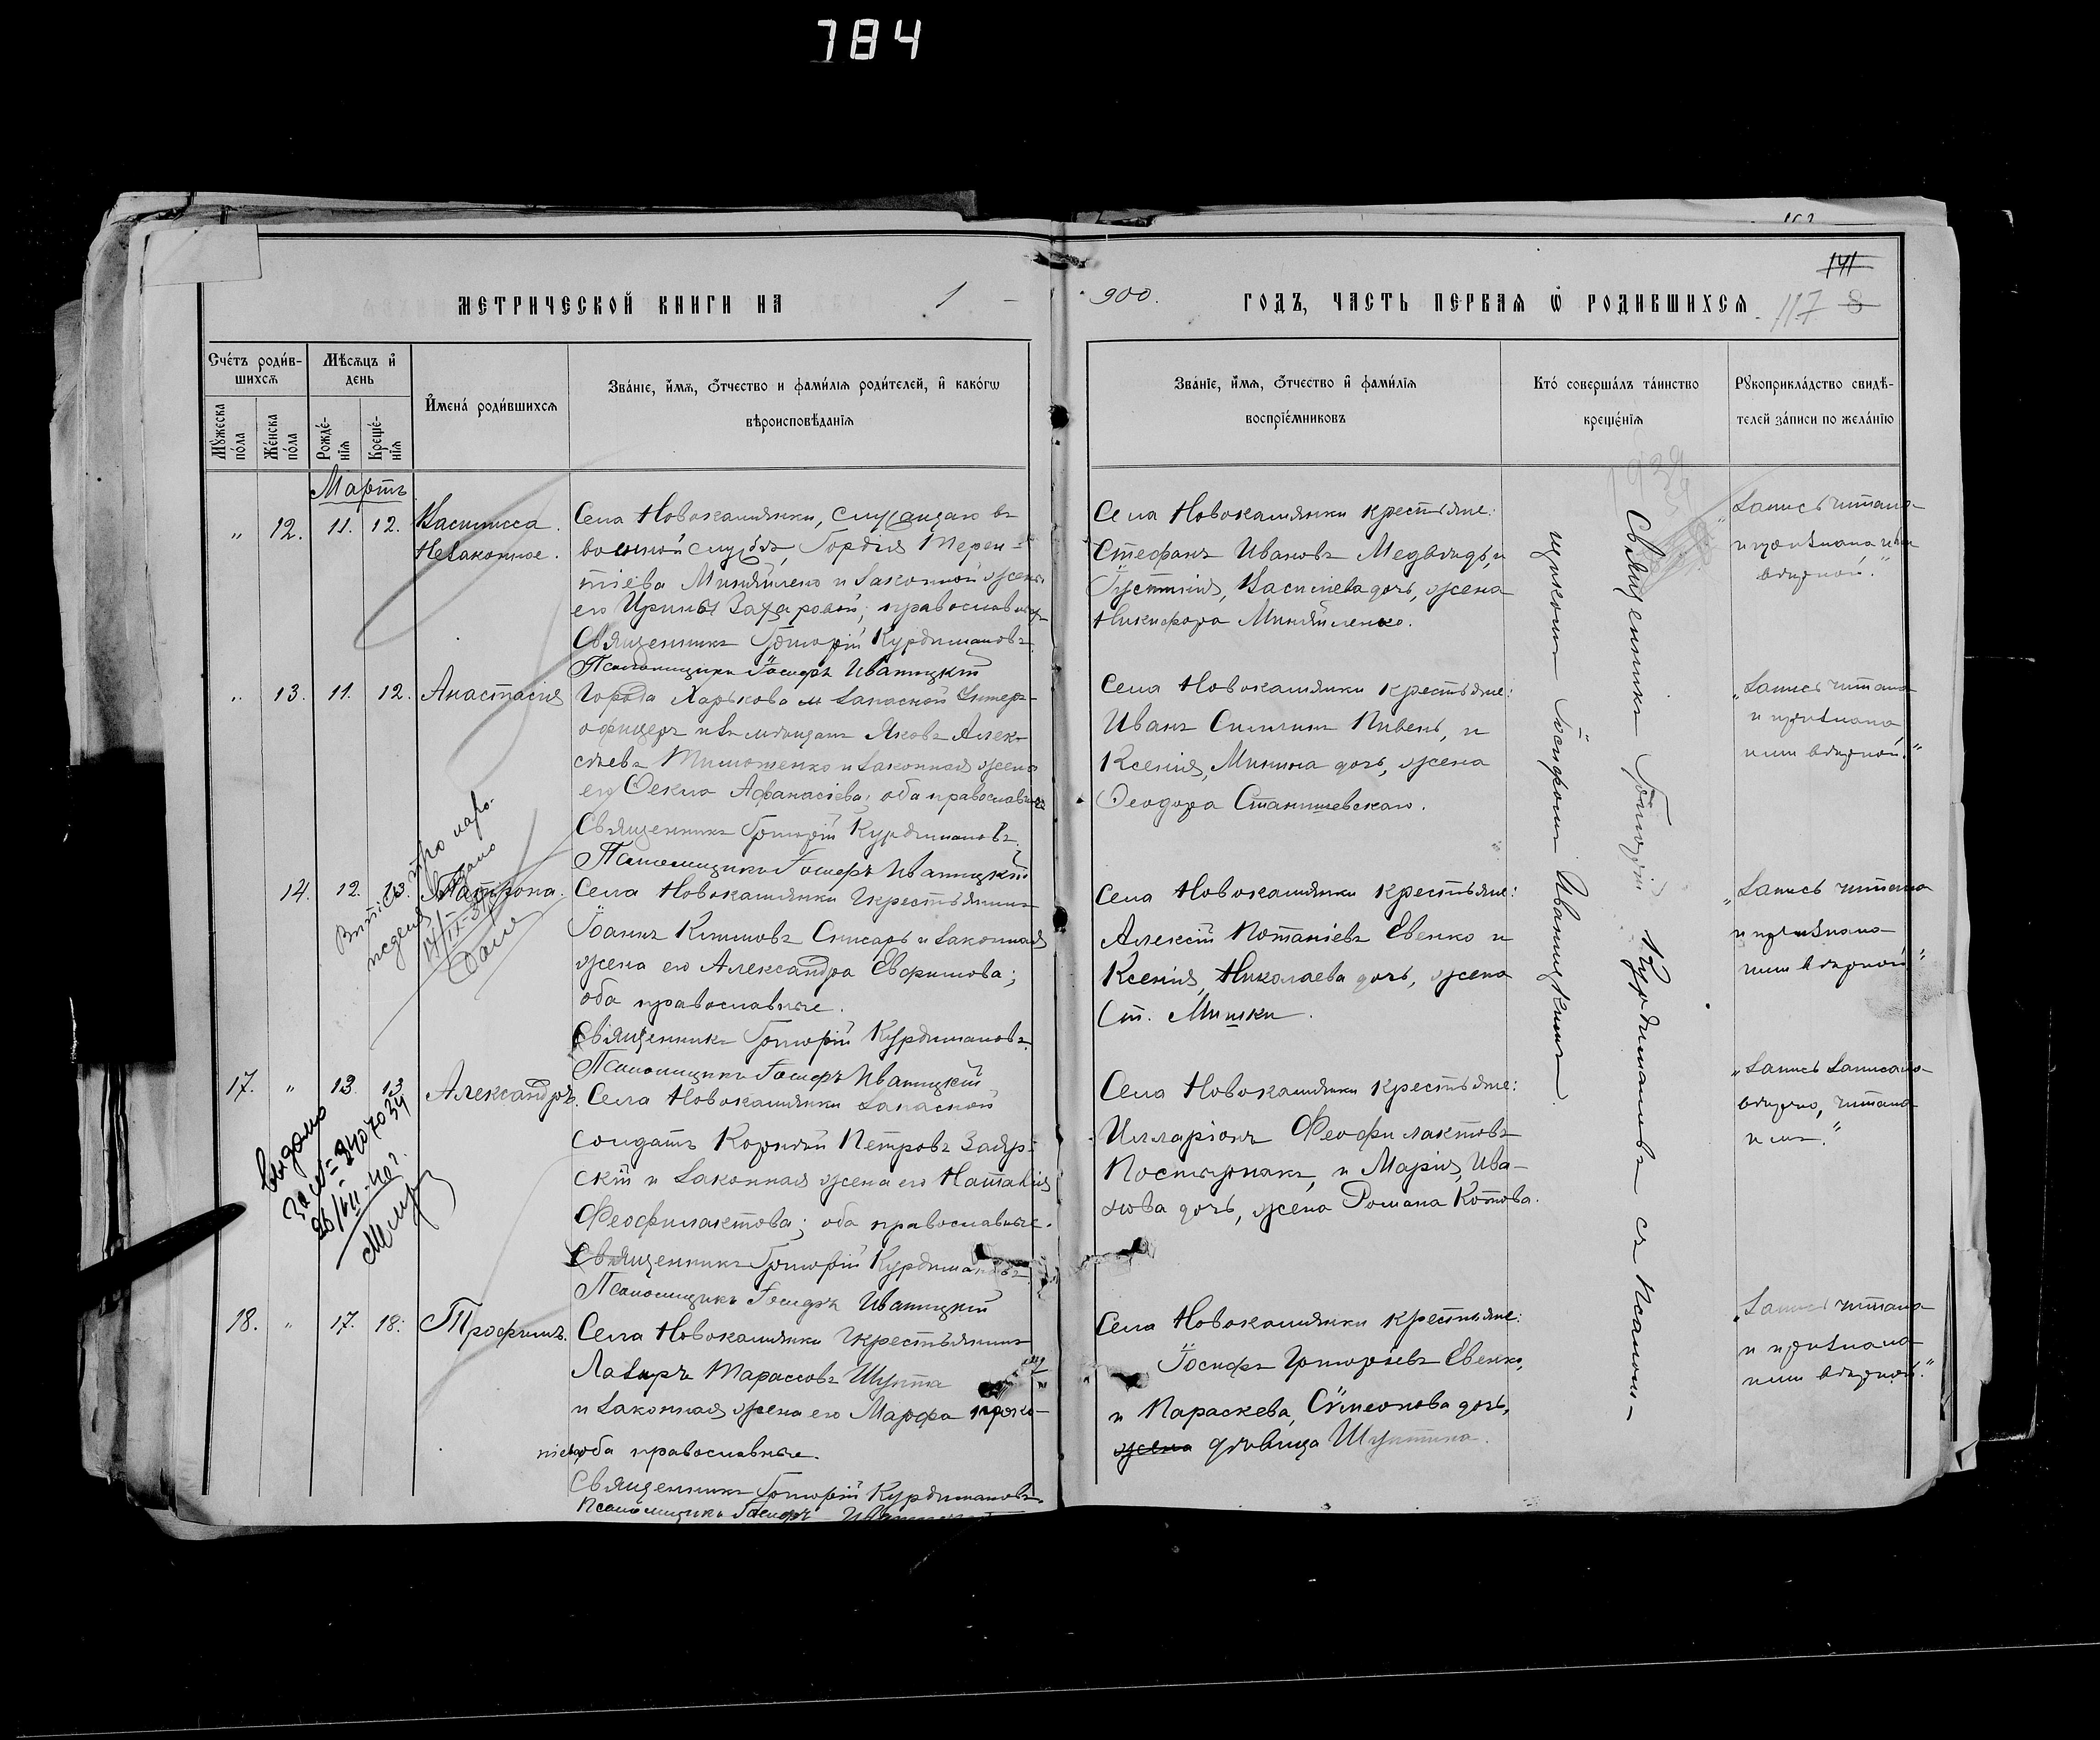 784
162
141
МЕТРИЧЕСКОЙ КНИГИ НА 1
900. ГОДЪ, ЧАСТЬ ПЕРВАЯ Ѡ РОДИВШИХСЯ. 117 8
Счетъ родив-
шихся
Мѣсяцъ и
день
Имена родившихся
Званіе, имя, отчество и фамилія родителей, и какогѡ
вѣроисповѣданія
Мужеска
пола
Женска
пола
Рожде-
нія
Креще-
нія
Званіе, имя, отчество и фамилія
воспріемниковъ
Кто совершалъ таинство
крещенія
Рукоприкладство свидѣ-
телей записи по желанію
Мартъ
„ 12. 11. 12. Василисса.
Незаконное.
Села Новокамянки, служащаго въ
военной службѣ, Гордія Терен-
тіева и законной жены
его Ирины Захаровой; православн
Священникъ Григорій Курдимановъ
Псаломщикъ Іосифъ Иваницкій
Села Новокамянки крестьяне:
Стефанъ Ивановъ Медвѣдь, и
Іустинія, Васильева дочь, жена
Никифора
„Запись читана
и признана
вѣрной."
„ 13. 11. 12. Анастасія
Города Харькова запасной унтер-
офицеръ изъ мѣщанъ Яковъ Алек-
сѣевъ Тимошенко и законная жена
его Ѳекла Афанасіева; оба православные
Священникъ Григорій Курдимановъ.
Псаломщикъ Іосифъ Иваницкій
Села Новокамянки крестьяне:
Иванъ Пивень, и
Ксенія, Минина дочь, жена
Ѳеодора Станишевскаго.
„Запись читана
и признана
ими вѣрной."
14. 12. 13. Матрона.
Села Новокамянки крестьянинъ
Іоаннъ Климовъ Слисарь и законная
жена его Александра Евфимова;
оба православные.
Священникъ Григорій Курдимановъ.
Псаломщикъ Іосифъ Иваницкій
Села Новокамянки крестьяне:
Алексій Потапіевъ Евенко и
Ксенія, Николаева дочь, жена
Ст. Мишки.
„Запись читана
и признана
ими вѣрной."
17. „ 13. 13 Александръ.
Села Новокамянки запасной
солдатъ Корнилій Петровъ Заяр-
скій и законная жена его Наталія
Феофилактова; оба православные.
Священникъ Григорій Курдимановъ
Псаломщикъ Іосифъ Иваницкій
Села Новокамянки крестьяне:
Илларіонъ Феофилактовъ
и Марія, Ива-
нова дочь, жена Романа Котова.
„Запись записана
вѣрно, читана
ими."
видано
26/VII-40г.
18. „ 17. 18. Трофимъ.
Села Новокамянки крестьянинъ
Лазарь Тарасовъ Шупта
и законная жена его Марфа Проко-
піева оба православные.
Священникъ Григорій Курдимановъ
Псаломщикъ Іосифъ Иваницкій
Села Новокамянки крестьяне:
Іосифъ Григоріевъ Евенко,
и Параскева, Сѵмеонова дочь,
жена дѣвица Шуптина.
„Запись читана
и признана
ими вѣрной."
Священникъ Григорій Курдимановъ съ Псалом-
щикомъ Іосифомъ Иваницкимъ.